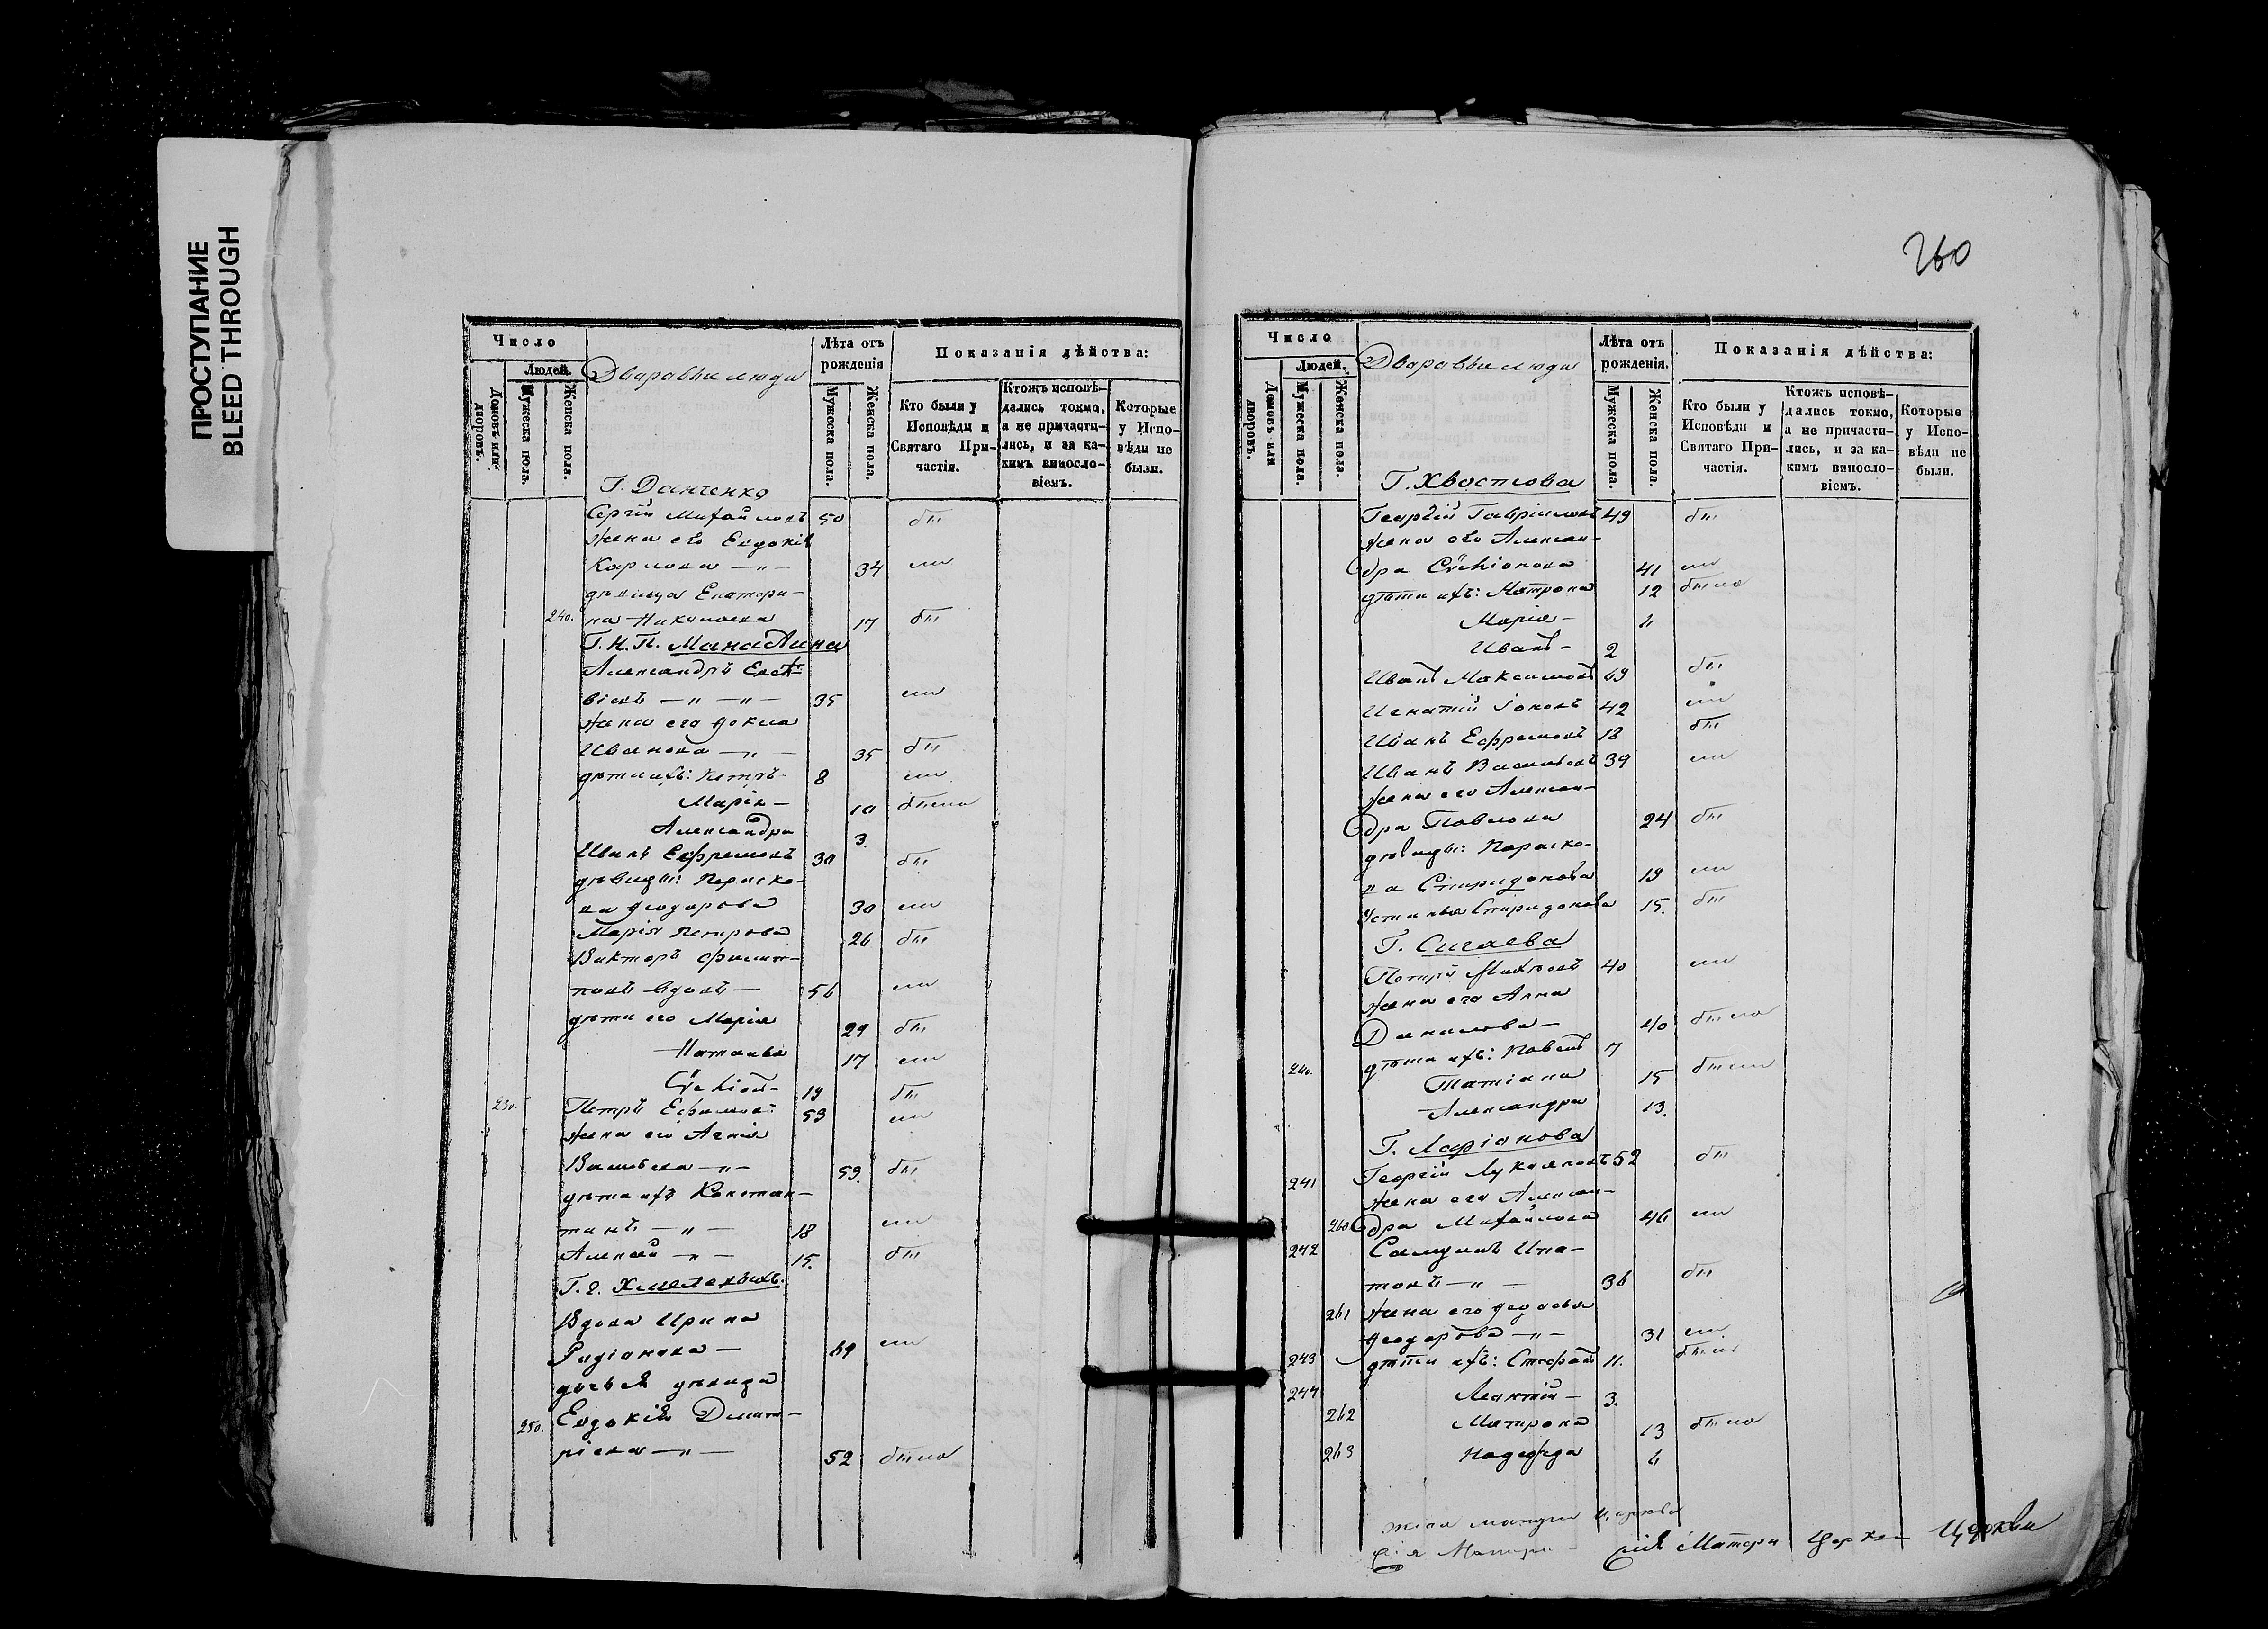 ПРОСТУПАНИЕ
BLEED THROUGH
Число
Людей.
Домовъ или дворовъ.
Мужеска пола.
Женска пола.
Дваравыи люди
Лѣта отъ рожденія
Мужеска пола.
Женска пола.
Показанія дѣйства:
Кто были у Исповѣди и Святаго Причастія.
Ктожъ исповѣдались токмо, а не причастились, и за какимъ винословіемъ.
Которые у Исповѣди не были.
Г. Данченко
Сергій Михайловъ 50 бы
Жена его Евдокія
Карпова —"— 34 сш
дѣвица Екатери-
240. на Николаева 17 бы
Г. К. П.
Александръ
віевъ —"—"— 35 сш
Жена его Фокла
Иванова —"— 35 бы
дѣти ихъ: Петръ- 8 сш
Марія — 10 бысш
Александра 3.
Иванъ Ефремовъ 30 бы
дѣвицы: Параске-
ва Феодорова 30 сш
Марія Петрова 26 бы
Викторъ Филип-
повъ вдовъ — 56 сш
дѣти его Марія 29 бы
Наталья 17 сш
19 бы
230. Петръ Ефимовъ 53 сш
Жена его
Васильева —"— 53. бы
дѣти ихъ Констан-
тинъ —"— 18 сш
Алексѣй —"— 15. бы
Г. г.
Вдова Ирина
Родіонова — 69 сш
дочь ея дѣвица
250. Евдокія Димит-
ріева —"— 52 бысш
260
Число
Людей.
Домовъ или дворовъ.
Мужеска пола.
Женска пола.
Дваравыи люди
Лѣта отъ рожденія.
Мужеска пола.
Женска пола.
Показанія дѣйства:
Кто были у Исповѣди и Святаго Причастія.
Ктожъ исповѣдались токмо, а не причастились, и за какимъ винословіемъ.
Которые у Исповѣди не были.
Г. Хвостова
Георгій Гавріиловъ 49 бы
Жена его Алексан-
дра 41 сш
дѣти ихъ: Матрона 12 бысш
Марія —
Иванъ — 2
Иванъ Максимовъ 49 бы
Игнатій 42 сш
Иванъ Ефремовъ 18 бы
Иванъ Васильевъ 39 сш
Жена его Алексан-
дра Павлова 24 бы
дѣвицы: Параске-
ва Спиридонова 19 сш
Устинья Спиридонова 15. бы
Г. Сигаева
Петръ 40 сш
Жена его Анна
Данилова — 40 бысш
240. дѣти ихъ: Павелъ 7
Татіана 15 бысш
Александра 13.
Г.
241 Георгій Лукьяновъ 52 бы
Жена его Алексан-
260 дра Михайлова 46 сш
242 Самуилъ Ипа-
товъ —"— 36 бы
261 Жена его
Феодорова —"— 31 сш
243 дѣти ихъ: Стефанъ 11. бысш
244 Леонтій — 3.
262 Матрона 13 бысш
263 Надежда 6
сія Матери Церкви